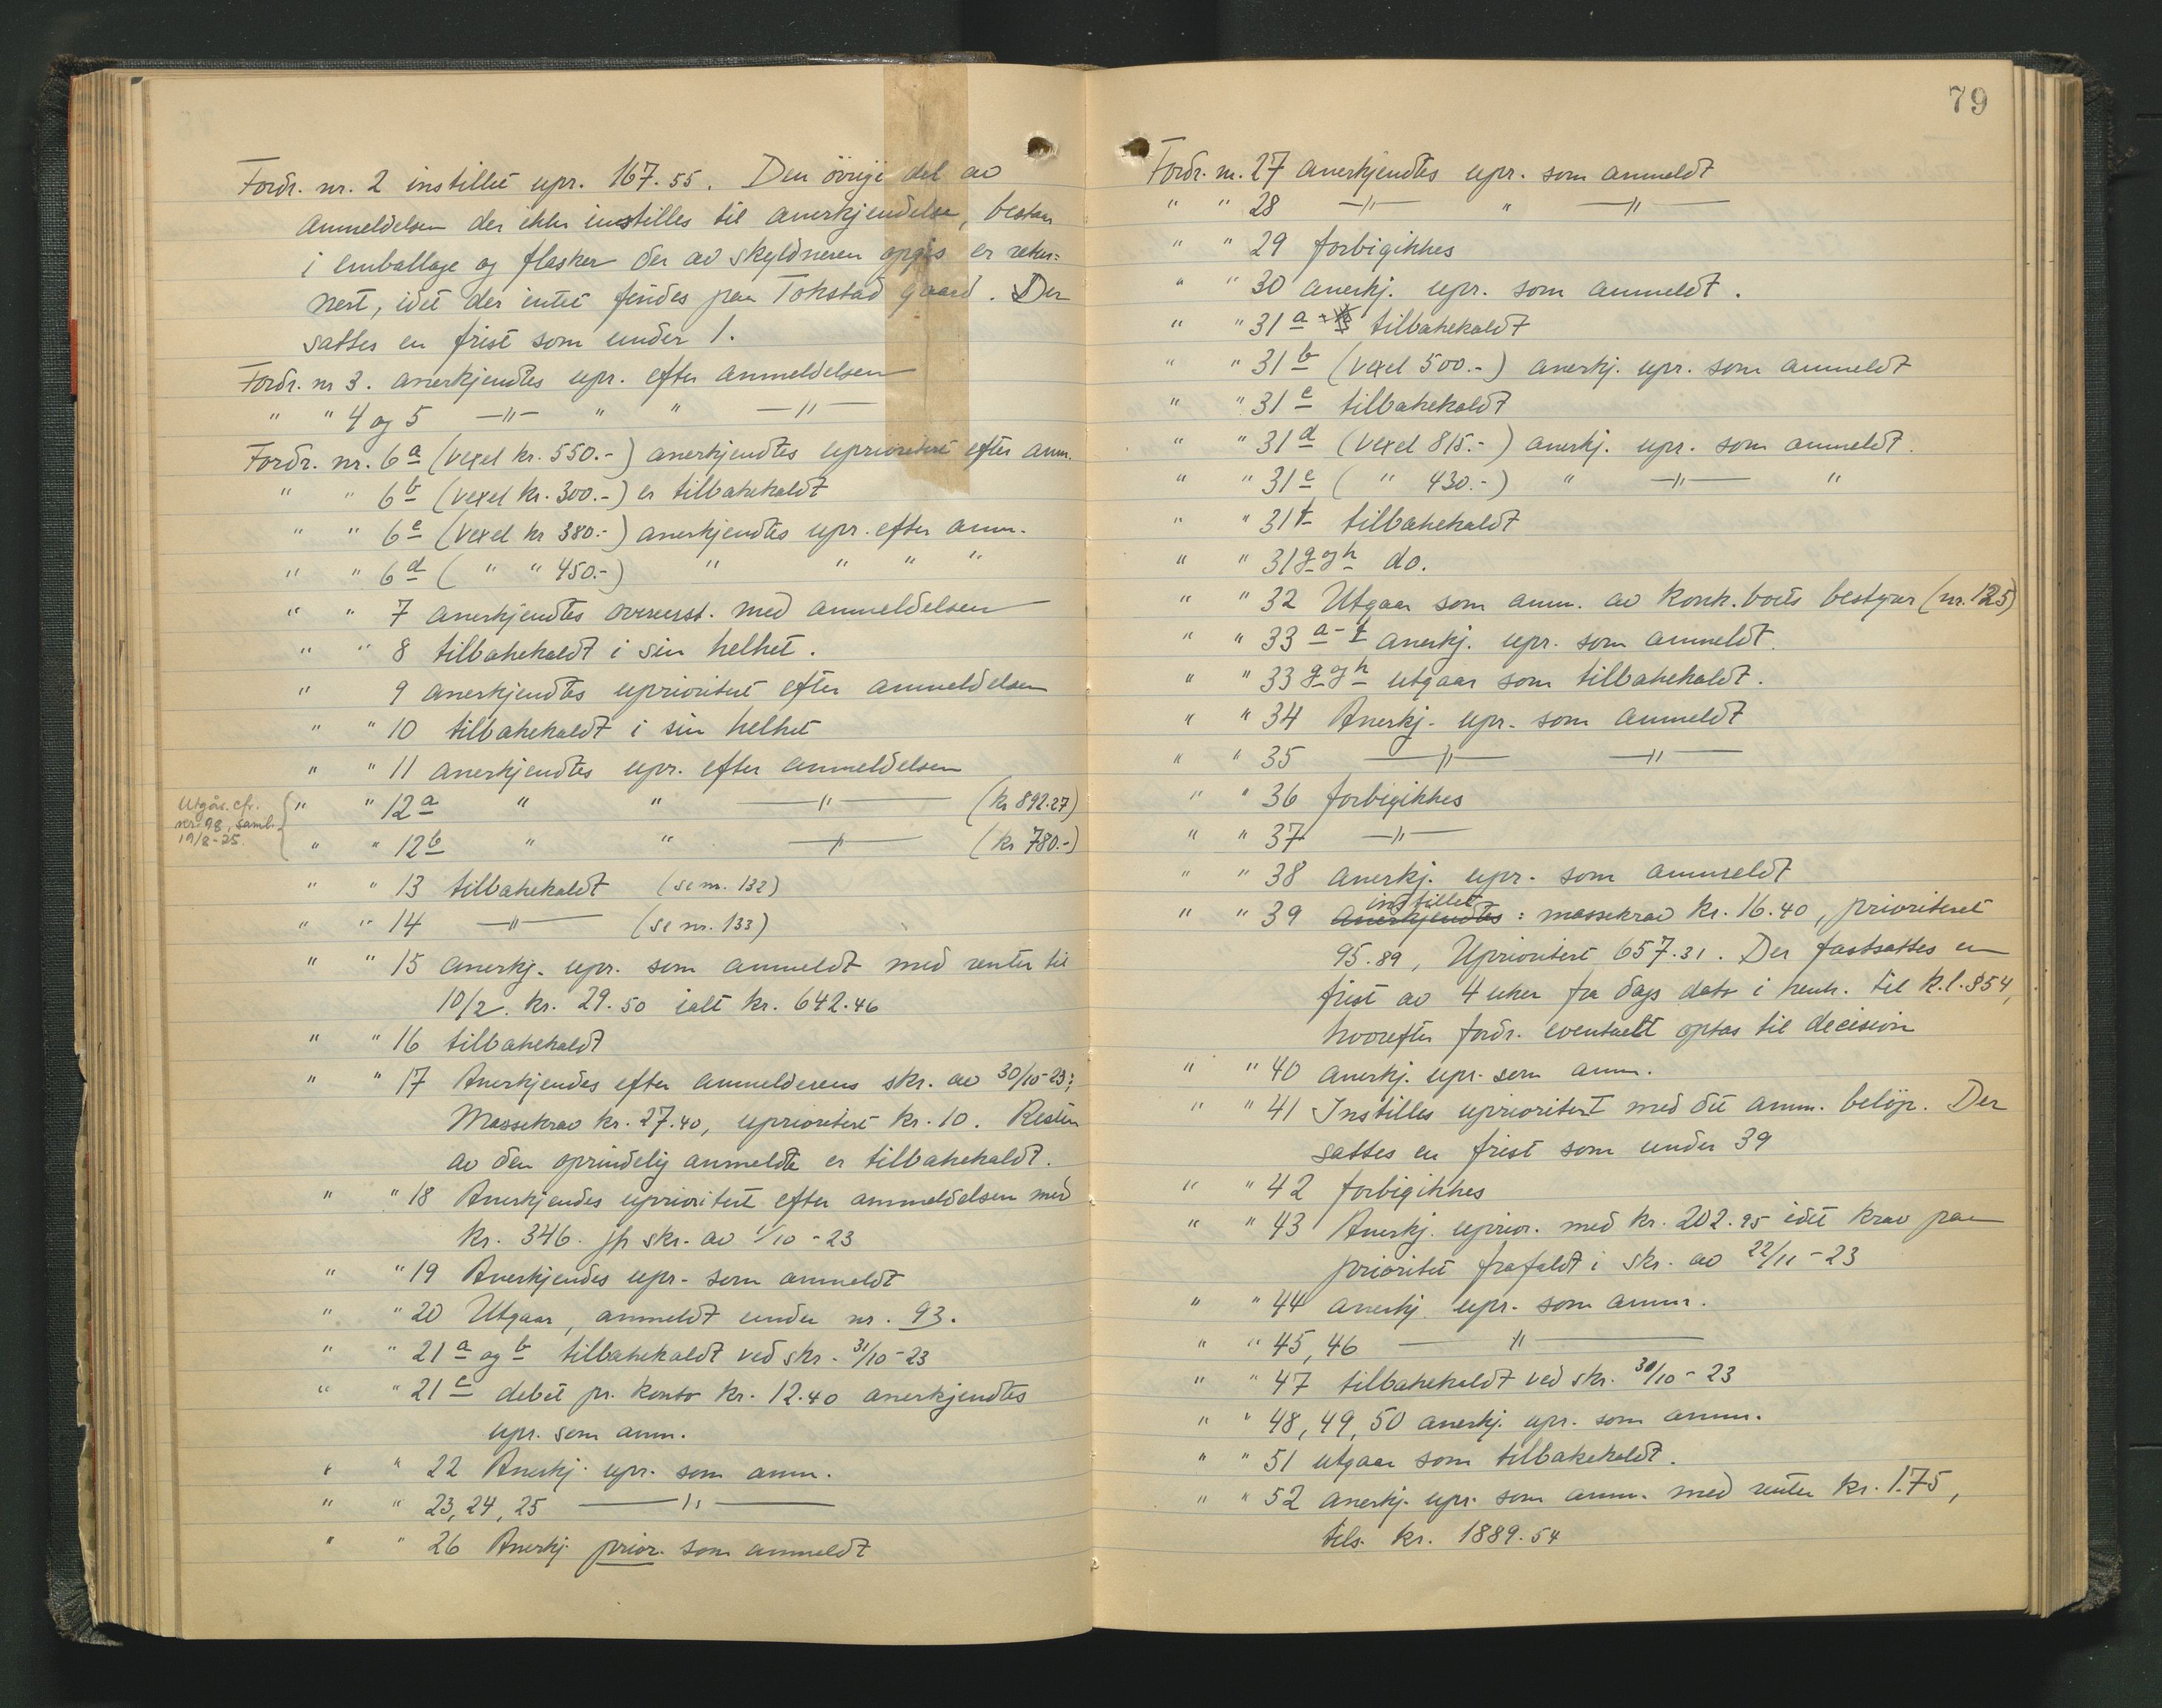 Fordr. nr. 2 instillet upr. 167.55. Den övrige del av
anmeldelsen der ikke instilles til anerkjendelse, bestaar
i emballage og flasker der av skyldneren opgis er retur=
nert, idet der intet findes paa Tokstad gaard. Der
sattes en frist som under 1.
Fordr. nr 3. anerkjendtes upr. efter anmeldelsen
" " 4 og 5 —"— " " —"—
Fordr. nr. 6a (vexel kr. 550.-) anerkjendtes uprioritert efter anm.
" " 6b (vexel kr. 300.-) er tilbakekaldt
" " 6c (vexel kr 380.-) anerkjendtes upr. efter anm.
" " 6d ( " " 450.-) " " " "
" " 7 anerkjendtes overenst. med anmeldelsen
" " 8 tilbakekaldt i sin helhet.
" 9 anerkjendtes uprioritert efter anmeldelsen
" " 10 tilbakekaldt i sin helhet
" " 11 anerkjendtes upr. efter anmeldelsen
Utgår. cfr.
nr. 98, samb.
19/8-25.
" " 12a " " —"— (kr 892.27)
" " 12b " " —"— (kr 780.-)
" " 13 tilbakekaldt (se nr. 132)
" " 14 —"— (se nr. 133)
" " 15 anerkj. upr. som anmeldt med renter til
10/2. kr. 29.50 ialt kr. 642.46
" " 16 tilbakekaldt
" " 17 Anerkjendes efter anmelderens skr. av 30/10-23:
Massekrav kr. 27.40, uprioritert kr. 10. Resten
av den oprindelig anmeldte er tilbakekaldt.
" " 18 Anerkjendes uprioritert efter anmeldelsen med
kr. 346. jfr skr. av 1/10-23
" " 19 Anerkjendes upr. som anmeldt
" " 20 Utgaar, anmeldt under nr. 93.
" " 21a og b tilbakekaldt ved skr. 31/10-23
" " 21c debet pr. konto kr. 12.40 anerkjendtes
upr. som anm.
" " 22 Anerkj. upr. som anm.
" " 23, 24, 25 —"—
" " 26 Anerkj. prior. som anmeldt
79
Fordr. nr. 27 anerkjendtes upr. som anmeldt
" " 28 —"— " —"—
" " 29 forbigikkes
" " 30 anerkj. upr. som anmeldt.
" " 31a tilbakekaldt
" " 31b (vexel 500.-) anerkj. upr. som anmeldt
" " 31c tilbakekaldt
" " 31d (vexel 815.-) anerkj. upr. som anmeldt.
" " 31e ( " 430.-) " —"— "
" " 31f tilbakekaldt
" " 31g og h do.
" " 32 Utgaar som anm. av konk.boets bestyrer (nr. 125)
" " 33a-f anerkj. upr. som anmeldt.
" " 33g og h utgaar som tilbakekaldt.
" " 34 Anerkj. upr. som anmeldt
" " 35 —"— —"—
" " 36 forbigikkes
" " 37 —"—
" " 38 anerkj. upr. som anmeldt
instillet
" " 39 anerkjendtes: massekrav kr. 16.40, prioritert
95.89, Uprioritert 657.31. Der fastsattes en
frist av 4 uker fra dags dato i henh. til k.l. §54,
hvorefter fordr. eventuelt optas til decision
" " 40 anerkj. upr. som anm.
" " 41 Instilles uprioritert med det anm. belöp. Der
sattes en frist som under 39
" " 42 forbigikkes
" " 43 Anerkj. uprior. med kr. 202.95 idet krav paa
prioritet frafaldt i skr. av 22/11-23
" " 44 anerkj. upr. som anm.
" " 45, 46 —"—
" " 47 tilbakekaldt ved skr. 30/10-23
" " 48, 49, 50 anerkj. upr. som anm.
" " 51 utgaar som tilbakekaldt.
" " 52 anerkj. upr. som anm. med renter kr. 1.75,
tils. kr. 1889.54